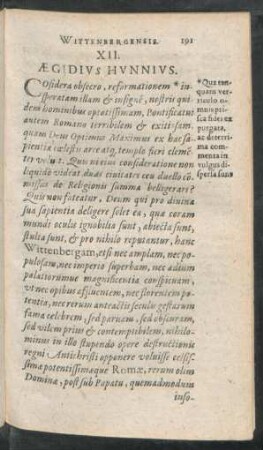 WITTENBERGENSIS. 191
XII.
ÆGIDIVS HVNNIVS.
COsidera obsecro, reformationem * in-
speratam illam & insignẽ, nostris qui-
dem hominibus optatissimam, Pontificatui
autem Romano terribilem & exitiosam
quam Deus Optimus Maximus ex hac sa-
pientiæ cælestis arce atq; templo fieri clemẽ-
ter voluit. Qua in eius consideratione non
liquido videat duas ciuitates ceu duello cõ-
missas de Religionis summa belligerare?
Quis non fateatur, Deum qui pro diuina
sua sapientia deligere solet ea, quæ coram
mundi oculis ignobilia sunt, abiecta sunt,
stulta sunt, & pro nihilo reputantur, hanc
Wittenbergam, etsi nec amplam, nec po-
pulosam, nec imperio superbam, nec ædium
palatiorumue magnificentia conspicuam,
vt nec opibus affluentem, nec florentem po-
tentia, nec rerum antractis seculis gestarum
fama celebrem, sed paruam, sed obscuram,
sed vilem prius & contemptibilem, nihilo-
minus in illo stupendo opere destructionis
regni Antichristi opponere voluisse celsis-
simæ potentissimæque Romæ, rerum olim
Dominæ, post sub Papatu, quemadmodum
info-
* Qua tan-
quam ven-
triculo o-
mnis pri-
sca fides ex
purgata,
ac deterri-
ma com-
menta in
vulgus di-
spersa sunt